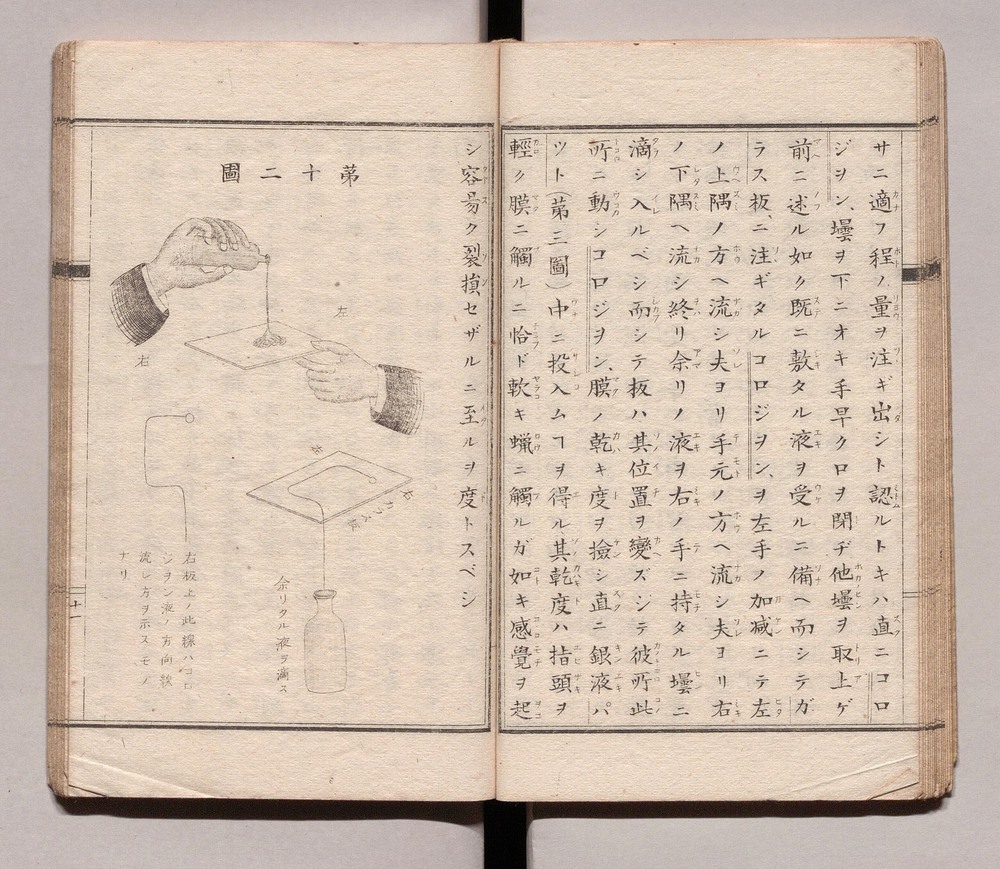 サニ適フ程ノ量ヲ注ギ出シト認ルトキハ直ニコロ
ジヲン、壜ヲ下ニオキ手早ク口ヲ閉ヂ他壜ヲ取上ゲ
前ニ述ル如ク既ニ敷タル液ヲ受ルニ備ヘ而シテガ
ラス板、ニ注ギタルコロジヲン、ヲ左手ノ加减ニテ左
ノ上隅ノ方ヘ流シ夫ヨリ手元ノ方ヘ流シ夫ヨリ右
ノ下隅ヘ流シ終リ余リノ液ヲ右ノ手ニ持タル壜ニ
滴シ入ルベシ而シテ板ハ其位置ヲ變ズシテ彼所此
所ニ動シコロジヲン、膜ノ乾キ度ヲ撿シ直ニ銀液パ
ツト(第三圖)中ニ投入ムヿヲ得ル其乾度ハ指頭ヲ
輕ク膜ニ觸ルニ恰ド軟キ蝋ニ觸ルガ如キ感覺ヲ起
シ容易ク裂損セザルニ至ルヲ度トスベシ
第十二圖
左
右
左
右
ガラス板
余リタル液ヲ滴ス
右板上ノ此線ハコロ
ジヲン液ノ方向線
流レ方ヲ示スモノ
ナリ
十一